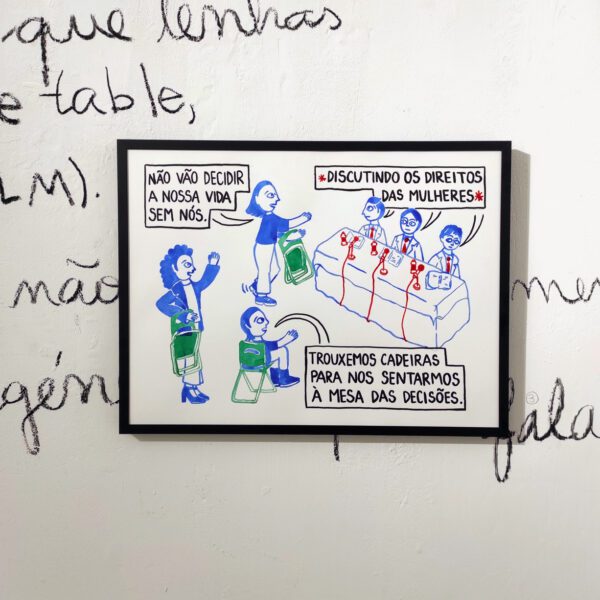 -que tenhas
e table,
LM).
NÃO VÃO DECIDIR
A NOSSA VIDA
SEM NÓS.
*DISCUTINDO OS DIREITOS
DAS MULHERES*
TROUXEMOS CADEIRAS
PARA NOS SENTARMOS
À MESA DAS DECISÕES.
não
men
géne
fala